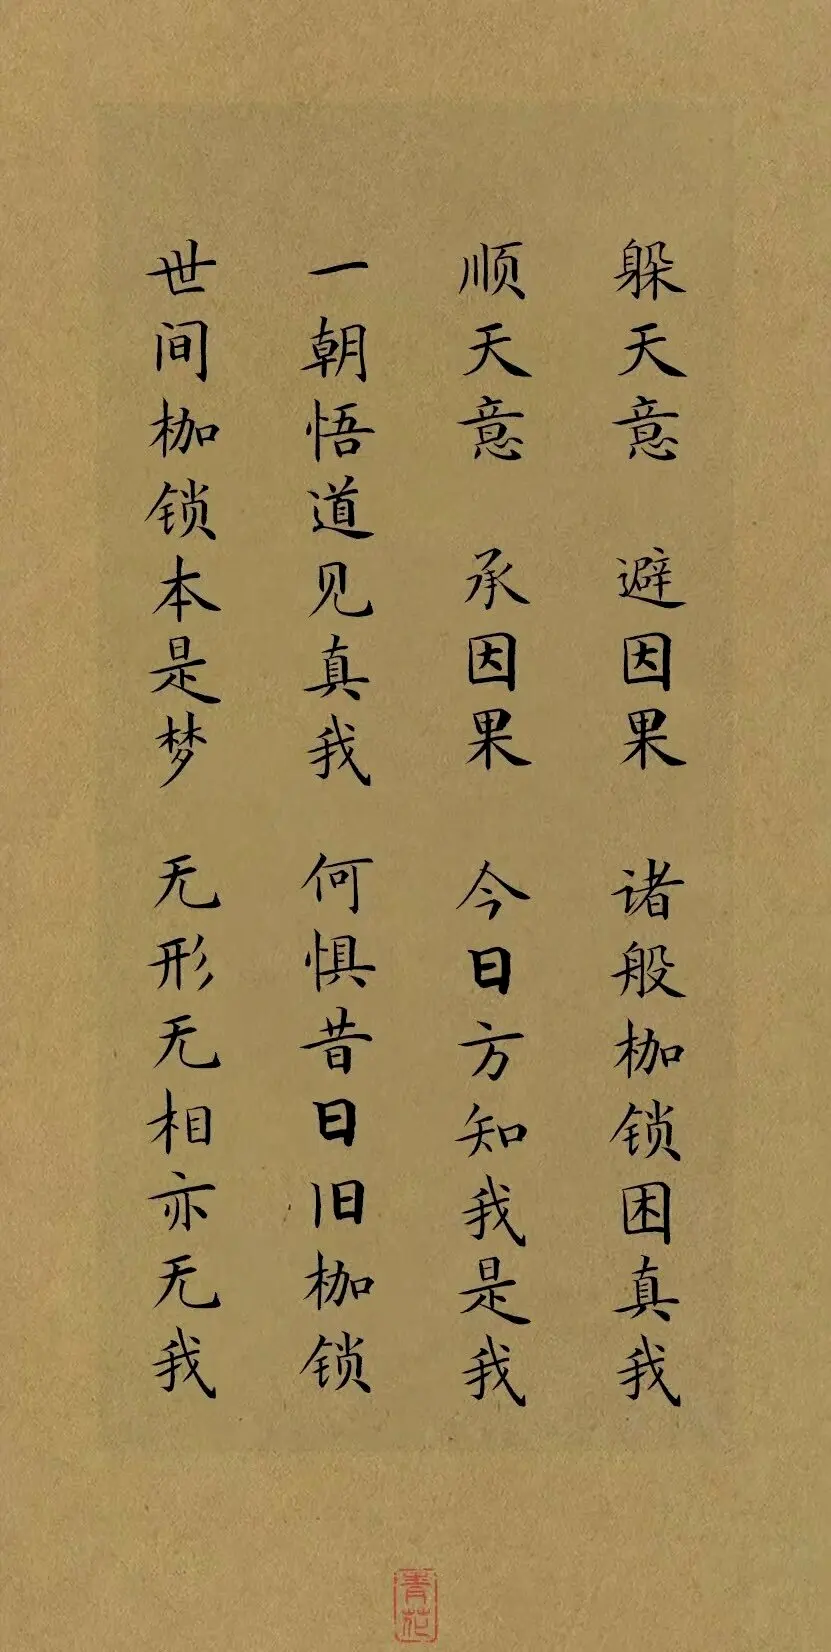 躲天意 避因果 诸般枷锁困真我
顺天意 承因果 今日方知我是我
一朝悟道见真我 何惧昔日旧枷锁
世间枷锁本是梦 无形无相亦无我
青花